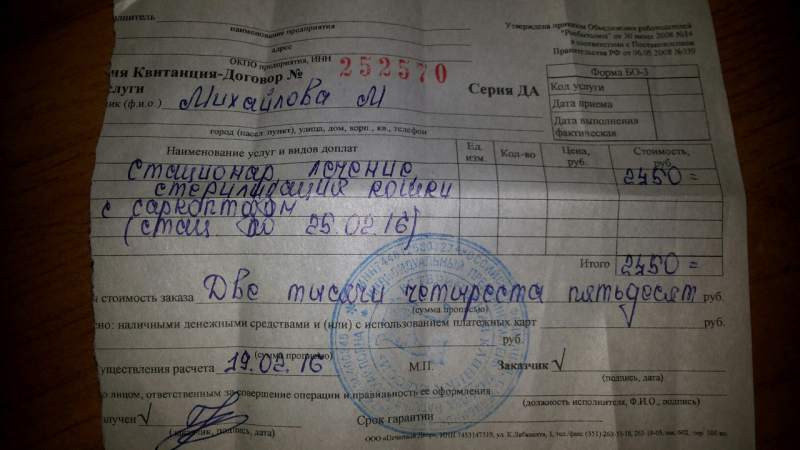 наименование предприятия
адрес
ОКПО предприятия, ИНН
Утверждена приказом Объединения работодателей
"Росбытсоюз" от 30 июня 2008 №14
в соответствии с Постановлением
Правительства РФ от 06.05 2008 №359
Квитанция-Договор № 252570
Серия ДА
Форма БО-3
Код услуги
Дата приема
Дата выполнения
фактическая
(ф.и.о.) Михайлова М
город (насел. пункт), улица, дом, корп., кв., телефон
Наименование услуг и видов доплат
Ед. изм.
Кол-во
Цена, руб.
Стоимость, руб.
Стационар лечение, 2450=
стерилизация кошки
с саркоптозом
(стац по 25.02.16)
Итого 2450=
стоимость заказа Две тысячи четыреста пятьдесят руб.
(сумма прописью)
наличными денежными средствами и (или) с использованием платежных карт руб.
руб.
(сумма прописью)
расчета 19.02.16 М.П. Заказчик √
(подпись, дата)
лицом, ответственным за совершение операции и правильность ее оформления
(должность исполнителя, Ф.И.О., подпись)
√ Срок гарантии
подпись, дата)
ООО «Печатный Двор», ИНН